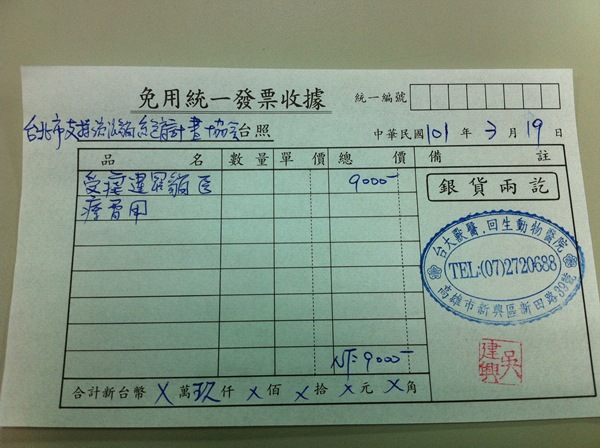 免用統一發票收據
統一編號
台北市支持流浪貓絕育計畫協會台照
中華民國101年3月19日
品名 數量 單價 總價 備註
受虐暹羅貓醫 9000-
療費用
銀貨兩訖
台大獸醫.回生動物醫院
TEL:(07)2720688
高雄市新興區新田路39號
NT:9000-
吳建興
合計新台幣X萬玖仟X佰X拾X元X角